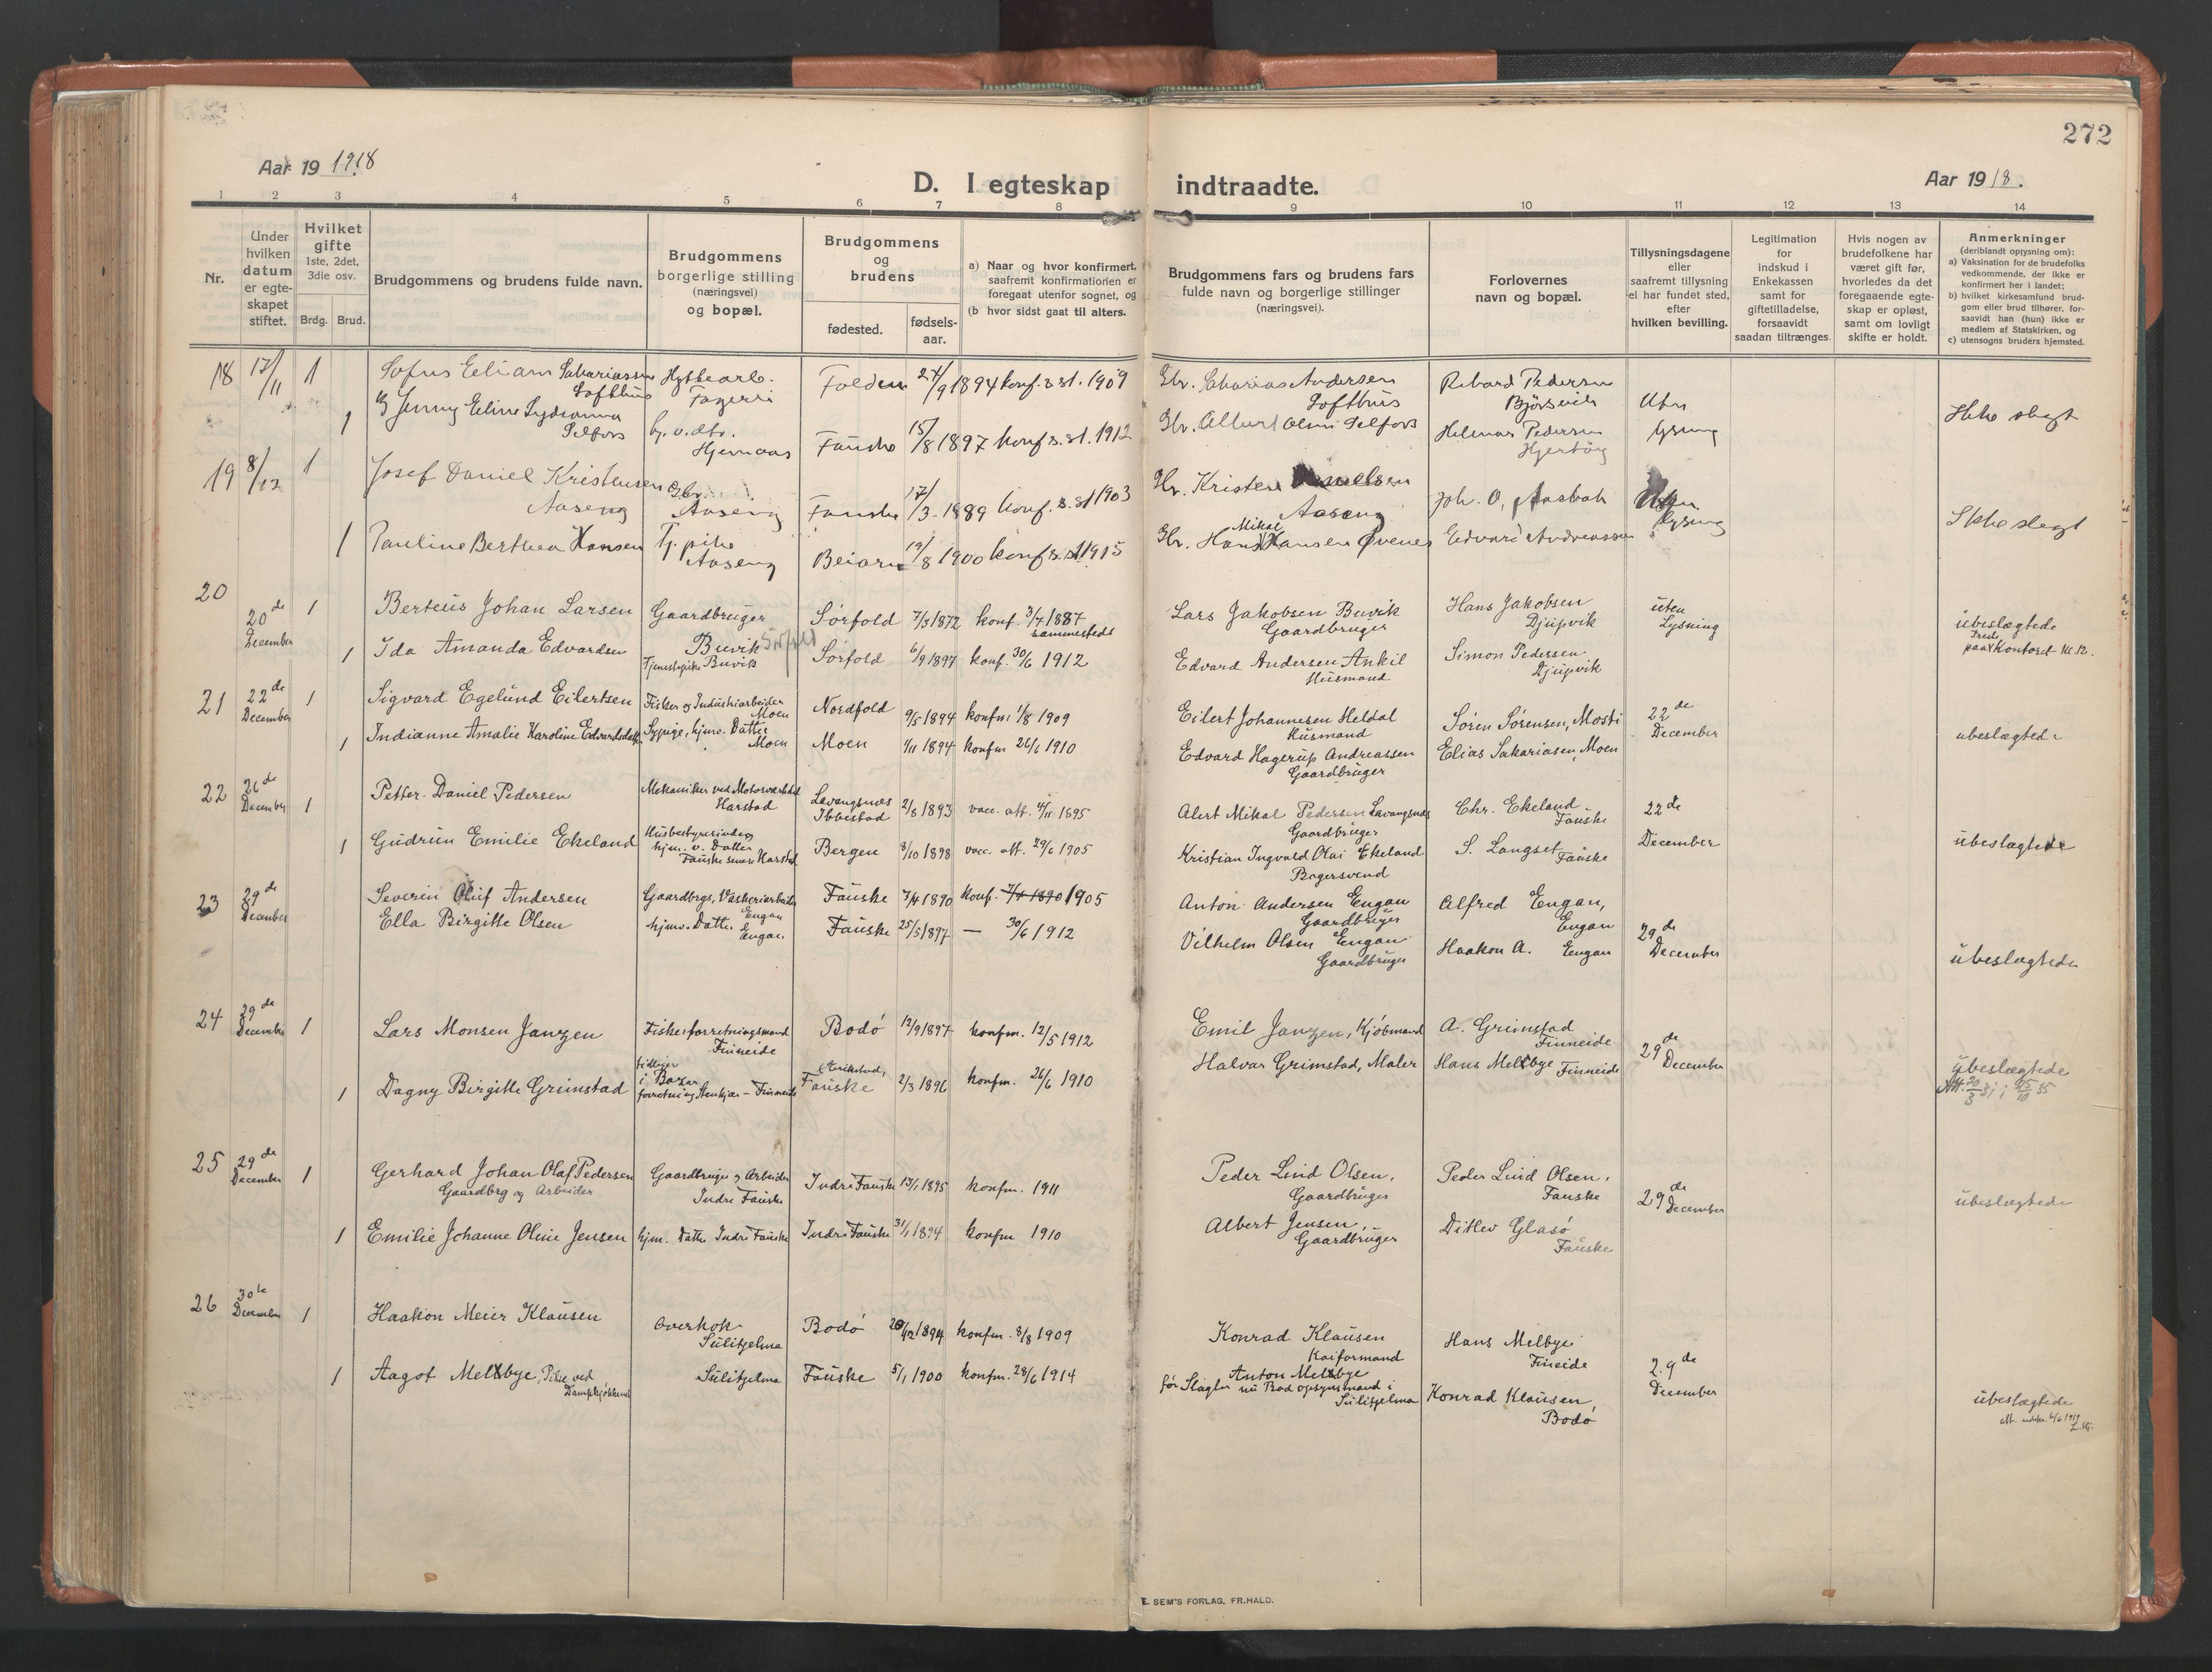 272
Aar 19 1918
D. I egteskap indtraadte.
Aar 19 18.
1 2 3 4 5 6 7 8 9 10 11 12 13 14
Nr.
Under hvilken datum er egteskapet stiftet.
Hvilket gifte 1ste, 2det, 3die osv.
Brdg. Brud.
Brudgommens og brudens fulde navn.
Brudgommens borgerlige stilling (næringsvei) og bopæl.
Brudgommens og brudens
fødested.
fødsels-aar.
a) Naar og hvor konfirmert, saafremt konfirmationen er foregaat utenfor sognet, og
(b hvor sidst gaat til alters.
Brudgommens fars og brudens fars fulde navn og borgerlige stillinger (næringsvei).
Forlovernes navn og bopæl.
Tillysningsdagene eller saafremt tillysning ei har fundet sted, efter hvilken bevilling.
Legitimation for indskud i Enkekassen samt for giftetilladelse, forsaavidt saadan tiltrænges.
Hvis nogen av brudefolkene har været gift før, hvorledes da det foregaaende egteskap er opløst, samt om lovligt skifte er holdt.
Anmerkninger (deriblandt opjysning om):
a) Vaksination for de brudefolks vedkommende, der ikke er konfirmert her i landet;
b) hvilket kirkesamfund brudgom eller brud tilhører, forsaavidt han (hun) ikke er medlem af Statskirken, og
c) utensogns bruders hjemsted.
18 17/11 1 Sofus Eeliam Sakariassen Softhus Hyttearb. Fagerli Folden 27/9 1894 konf. s. st. 1909 Gbr. Sakarias Andersen Softhus Rikard Pedersen Bjørsvik Uten
1 Jenny Eeline Lydianna Selfors hj. v. dtr. Hjemaas Fauske 15/8 1897 konf s. st. 1912 Gbr. Albert Olsen Selfors Helmar Pedersen lysning Ikke slegt
19 8/12 1 Josef Daniel Kristensen Aaseng Gbr. Aaseng Fauske 17/3 1889 konf. s. st 1903 Gbr. Kristen Aaseng Joh. O. Aasbak Uten lysning
1 Pauline Berthea Hansen Tj. pike Aaseng Beiarn 19/8 1900 konf s. st 1915 Gbr. Hans Mikal Hansen Øvenes Edvard Andreassen Ikke slegt
20 20de December 1 Berteus Johan Larsen Gaardbruger Buvik Sørfold Sørfold 7/5 1872 konf. 3/7 1887 sammesteds Lars Jakobsen Buvik Gaardbruger Hans Jakobsen Djupvik uten Lysning
1 Ida Amanda Edvardsen Tjenestepike Buvik Sørfold 6/9 1897 konf. 30/6 1912 Edvard Andersen Ankil Husmand Simon Pedersen Djupvik ubeslægtede paa Kontoret kl 12.
21 22de December 1 Sigvard Egelund Eilertsen Fisker og Industriarbeider Moen Nordfold 9/5 1894 konfm 1/8 1909 Eilert Johannesen Heldal Husmand Søren Sørensen, Mosti 22de December
1 Indianne Amalie Karoline Edvardsdatter Sypige, hjmv. Datter Moen Moen 1/11 1894 konfm 26/6 1910 Edvard Hagerup Andreassen Gaardbruger Elias Sakariasen, Moen ubeslægtede
22 26de December 1 Petter Daniel Pedersen Mekaniker ved Motorværksted Harstad Lavangsnes Ibbestad 2/8 1893 vacc. att. 4/11 1895 Alert Mikal Pedersen Lavangsnes Gaardbruger Chr. Ekeland Fauske 22de December
1 Gudrun Emilie Ekeland Husbestyrerinde, hjm. v. Datter Fauske senere Harstad Bergen 8/10 1898 vacc. att. 29/6 1905 Kristian Ingvald Olai Ekeland Bagersvend S. Langset Fauske ubeslægtede
23 29de December Severin Oluf Andersen Gaardbrgs, Vaskeriarbeider Engan Fauske 7/4 1890 konf. 7/4 1890 1905 Anton Andersen Engan Gaardbruger Alfred Engan, Engan 29de December
Ella Birgitte Olsen hjmv. Datter Engan Fauske 25/5 1897 — 30/6 1912 Vilhelm Olsen Engan Gaardbruger Haakon A. Engan Engan ubeslægtede
24 29de December 1 Lars Monsen Janzen Fiskeforretningsmand Finneide Bodø 12/9 1897 konfm. 12/5 1912 Emil Janzen, Kjøbmand A. Grimstad Finneide 29de December
1 Dagny Birgitte Grimstad i Bazar forretning Stenkjær - Finneide Fauske 2/3 1896 konfm. 26/6 1910 Halvar Grimstad, Maler Hans Melbye Finneide ubeslægtede
Att. 20/3 31; 25/10 35
25 29de December 1 Gerhard Johan Olaf Pedersen Gaardbrg og Arbeider Gaardbruger og Arbeider Indre Fauske Indre Fauske 13/1 1895 konfm. 1911 Peder Lund Olsen, Gaardbruger Peder Lund Olsen, Fauske 29de December
1 Emilie Johanne Oline Jensen hjm. Datter Indre Fauske Indre Fauske 31/1 1894 konfm 1910 Albert Jensen, Gaardbruger Ditlev Glasø Fauske ubeslægtede
26 30te December 1 Haakon Meier Klausen Overkok Sulitjelma Bodø 28/12 1894 konfm. 8/8 1909 Konrad Klausen Kaiformand Hans Melbye Fineide 29de December
1 Aagot Melbye, Pike ved Dampkjøkkenet Sulitjelma Fauske 5/1 1900 konfm. 28/6 1914 Anton Melbye før Slagter nu Bad opsynsmand i Sulitjelma Konrad Klausen, Bodø ubeslægtede
E. SEM'S FORLAG, FR.HALD.